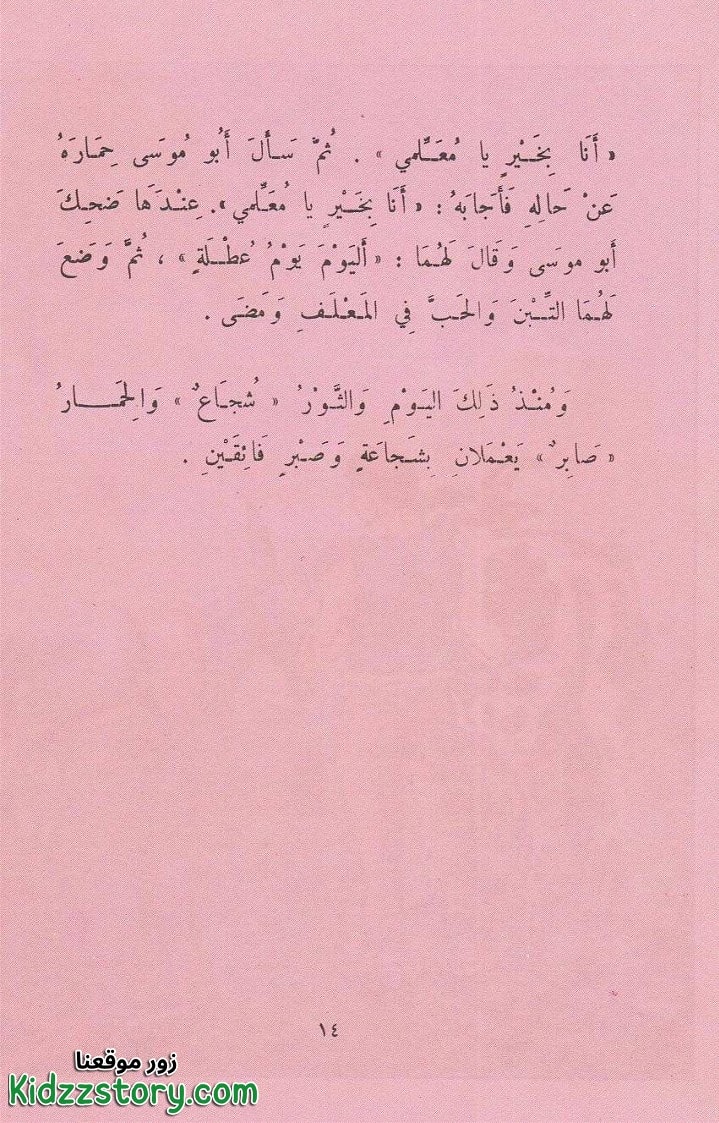 « أَنَا بِخَيْرٍ يا مُعَلِّمي » . ثُمَّ سَأَلَ أَبُو مُوسَى حِمَارَهُ
عَنْ حَالِهِ فَأَجَابَهُ : « أَنَا بِخَيْرٍ يا مُعَلِّمي ». عِنْدَهَا ضَحِكَ
أبو موسَى وَقَالَ لَهُمَا : « أَليَوْمَ يَوْمُ عُطْلَةٍ » ، ثُمَّ وَضَعَ
لَهُمَا التِّبْنَ وَالحَبَّ فِي المَعْلَفِ وَمَضَى .
وَمُنْذُ ذَلِكَ اليَوْمِ وَالثَّوْرُ « شُجَاعٌ » وَالحِمَارُ
« صَابِرٌ » يَعْمَلانِ بِشَجَاعَةٍ وَصَبْرٍ فَائِقَيْنِ .
١٤
زور موقعنا
Kidzzstory.com